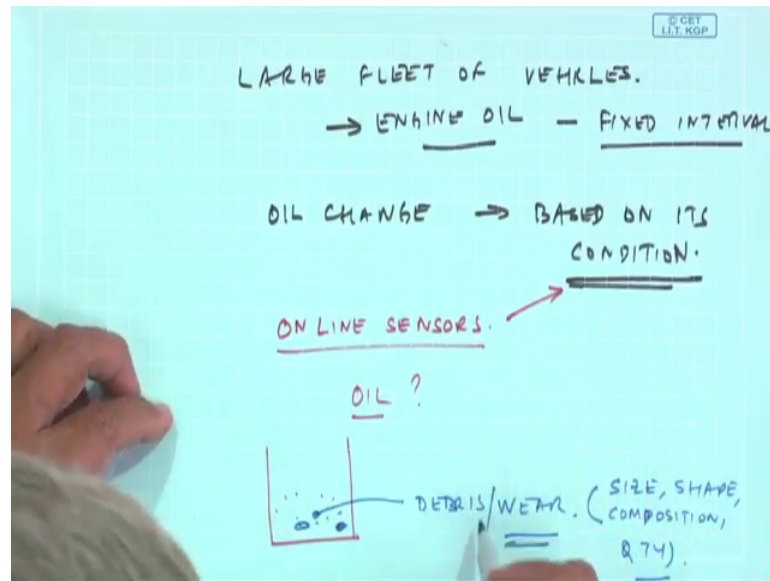 © CET
I.I.T. KGP
LARGE FLEET OF VEHICLES.
→ ENGINE OIL – FIXED INTERVAL
OIL CHANGE → BASED ON ITS
CONDITION.
ON LINE SENSORS.
OIL ?
DEBRIS/WEAR. (SIZE, SHAPE,
COMPOSITION,
QTY).